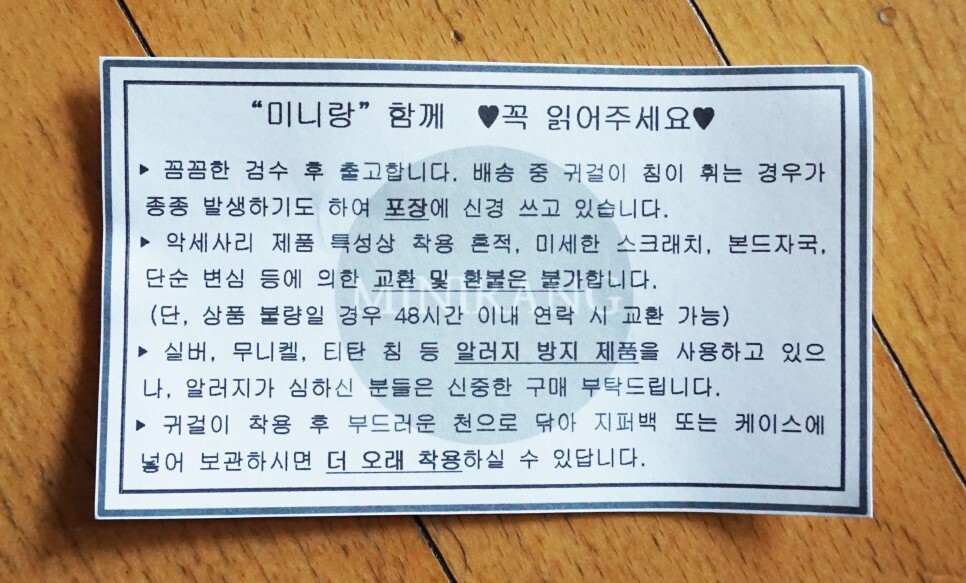 “미니랑” 함께 ♥꼭 읽어주세요♥
▸ 꼼꼼한 검수 후 출고합니다. 배송 중 귀걸이 침이 휘는 경우가
종종 발생하기도 하여 포장에 신경 쓰고 있습니다.
▸ 악세사리 제품 특성상 착용 흔적, 미세한 스크래치, 본드자국,
단순 변심 등에 의한 교환 및 환불은 불가합니다.
MINIRANG
(단, 상품 불량일 경우 48시간 이내 연락 시 교환 가능)
▸ 실버, 무니켈, 티탄 침 등 알러지 방지 제품을 사용하고 있으
나, 알러지가 심하신 분들은 신중한 구매 부탁드립니다.
▸ 귀걸이 착용 후 부드러운 천으로 닦아 지퍼백 또는 케이스에
넣어 보관하시면 더 오래 착용하실 수 있답니다.